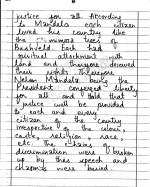 justice for all. According
to Mandela each citizen
loved his country like
the mimosa trees of
Bushveld. Each had
spiritual attachment with
land and therefore loved
their rights. Therefore
Nelson Mandela being the
President conferred liberty
for all and told that
justice will be provided
to each and every
citizen of the country
irrespective of the colour,
caste, religion, race,
etc. The chains of
discrimination were broken
up by their speed and
were buried.